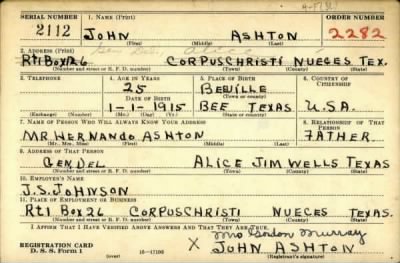 SERIAL NUMBER 1. NAME (Print) ORDER NUMBER
2112 JOHN ASHTON 2282
(First) (Middle) (Last)
2. ADDRESS (Print) Gen Del Alice
Rt1 Box 26 CORPUSCHRISTI NUECES TEX.
(Number and street or R. F. D. number) (Town) (County) (State)
3. TELEPHONE 4. AGE IN YEARS 5. PLACE OF BIRTH 6. COUNTRY OF CITIZENSHIP
25 BEEVILLE
DATE OF BIRTH (Town or county)
1-1-1915 BEE TEXAS U.S.A.
(Exchange) (Number) (Mo.) (Day) (Yr.) (State or country)
7. NAME OF PERSON WHO WILL ALWAYS KNOW YOUR ADDRESS 8. RELATIONSHIP OF THAT PERSON
MR HERNANDO ASHTON FATHER.
(Mr., Mrs., Miss) (First) (Middle) (Last)
9. ADDRESS OF THAT PERSON
GEN. DEL ALICE JIM WELLS TEXAS
(Number and street or R. F. D. number) (Town) (County) (State)
10. EMPLOYER'S NAME
J.S. JOHNSON
11. PLACE OF EMPLOYMENT OR BUSINESS
Rt1 Box 26 CORPUSCHRISTI NUECES TEXAS.
(Number and street or R. F. D. number) (Town) (County) (State)
I AFFIRM THAT I HAVE VERIFIED ABOVE ANSWERS AND THAT THEY ARE TRUE.
Mrs Gordon Murray
REGISTRATION CARD X JOHN ASHTON
D. S. S. Form 1 16-17105 (Registrant's signature)